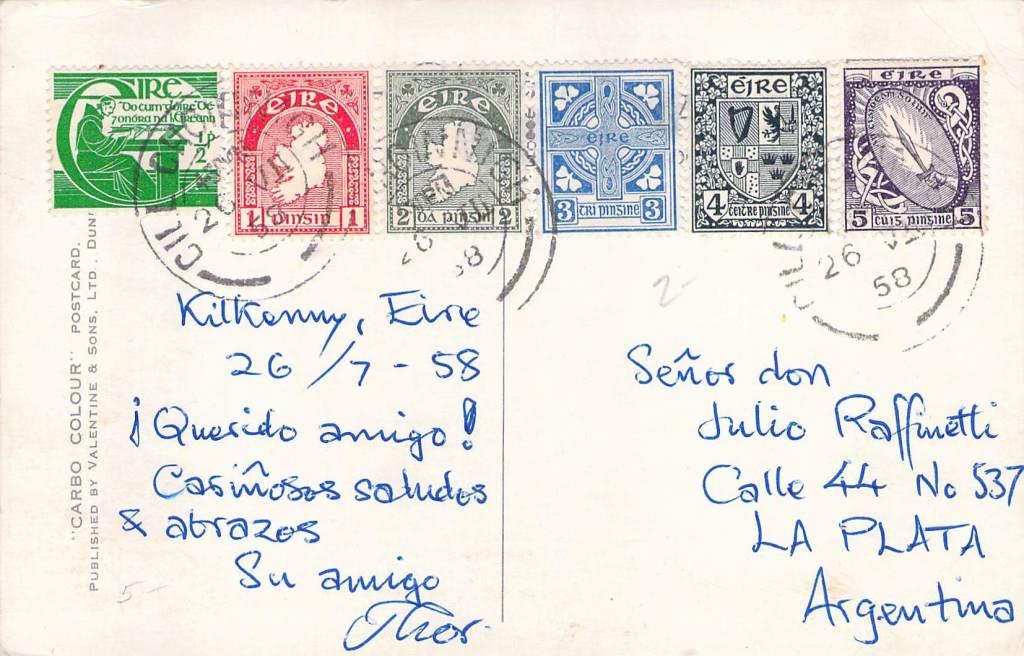 EIRE
Do cum Glóire Dé
7 onóra na hÉireann
½p
ÉIRE
1 pinsin 1
ÉIRE
2 dá pinsin 2
ÉIRE
3 trí pinsine 3
ÉIRE
4 ceitre pinsine 4
ÉIRE
5 cúig pinsine 5
CILL
26 VII
58
26 VII
58
CILL
26 VII
58
"CARBO COLOUR" POSTCARD.
PUBLISHED BY VALENTINE & SONS, LTD. DUN
2-
5-
Kilkenny, Eire
26/7-58
¡Querido amigo!
Cariñosos saludos
& abrazos
Su amigo
Thor.
Señor don
Julio Raffinetti
Calle 44 No 537
LA PLATA
Argentina